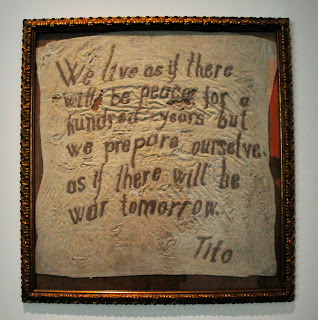 We live as if there
will be peace for a
hundred years but
we prepare ourselve.
as if there will be
war tomorrow.
Tito